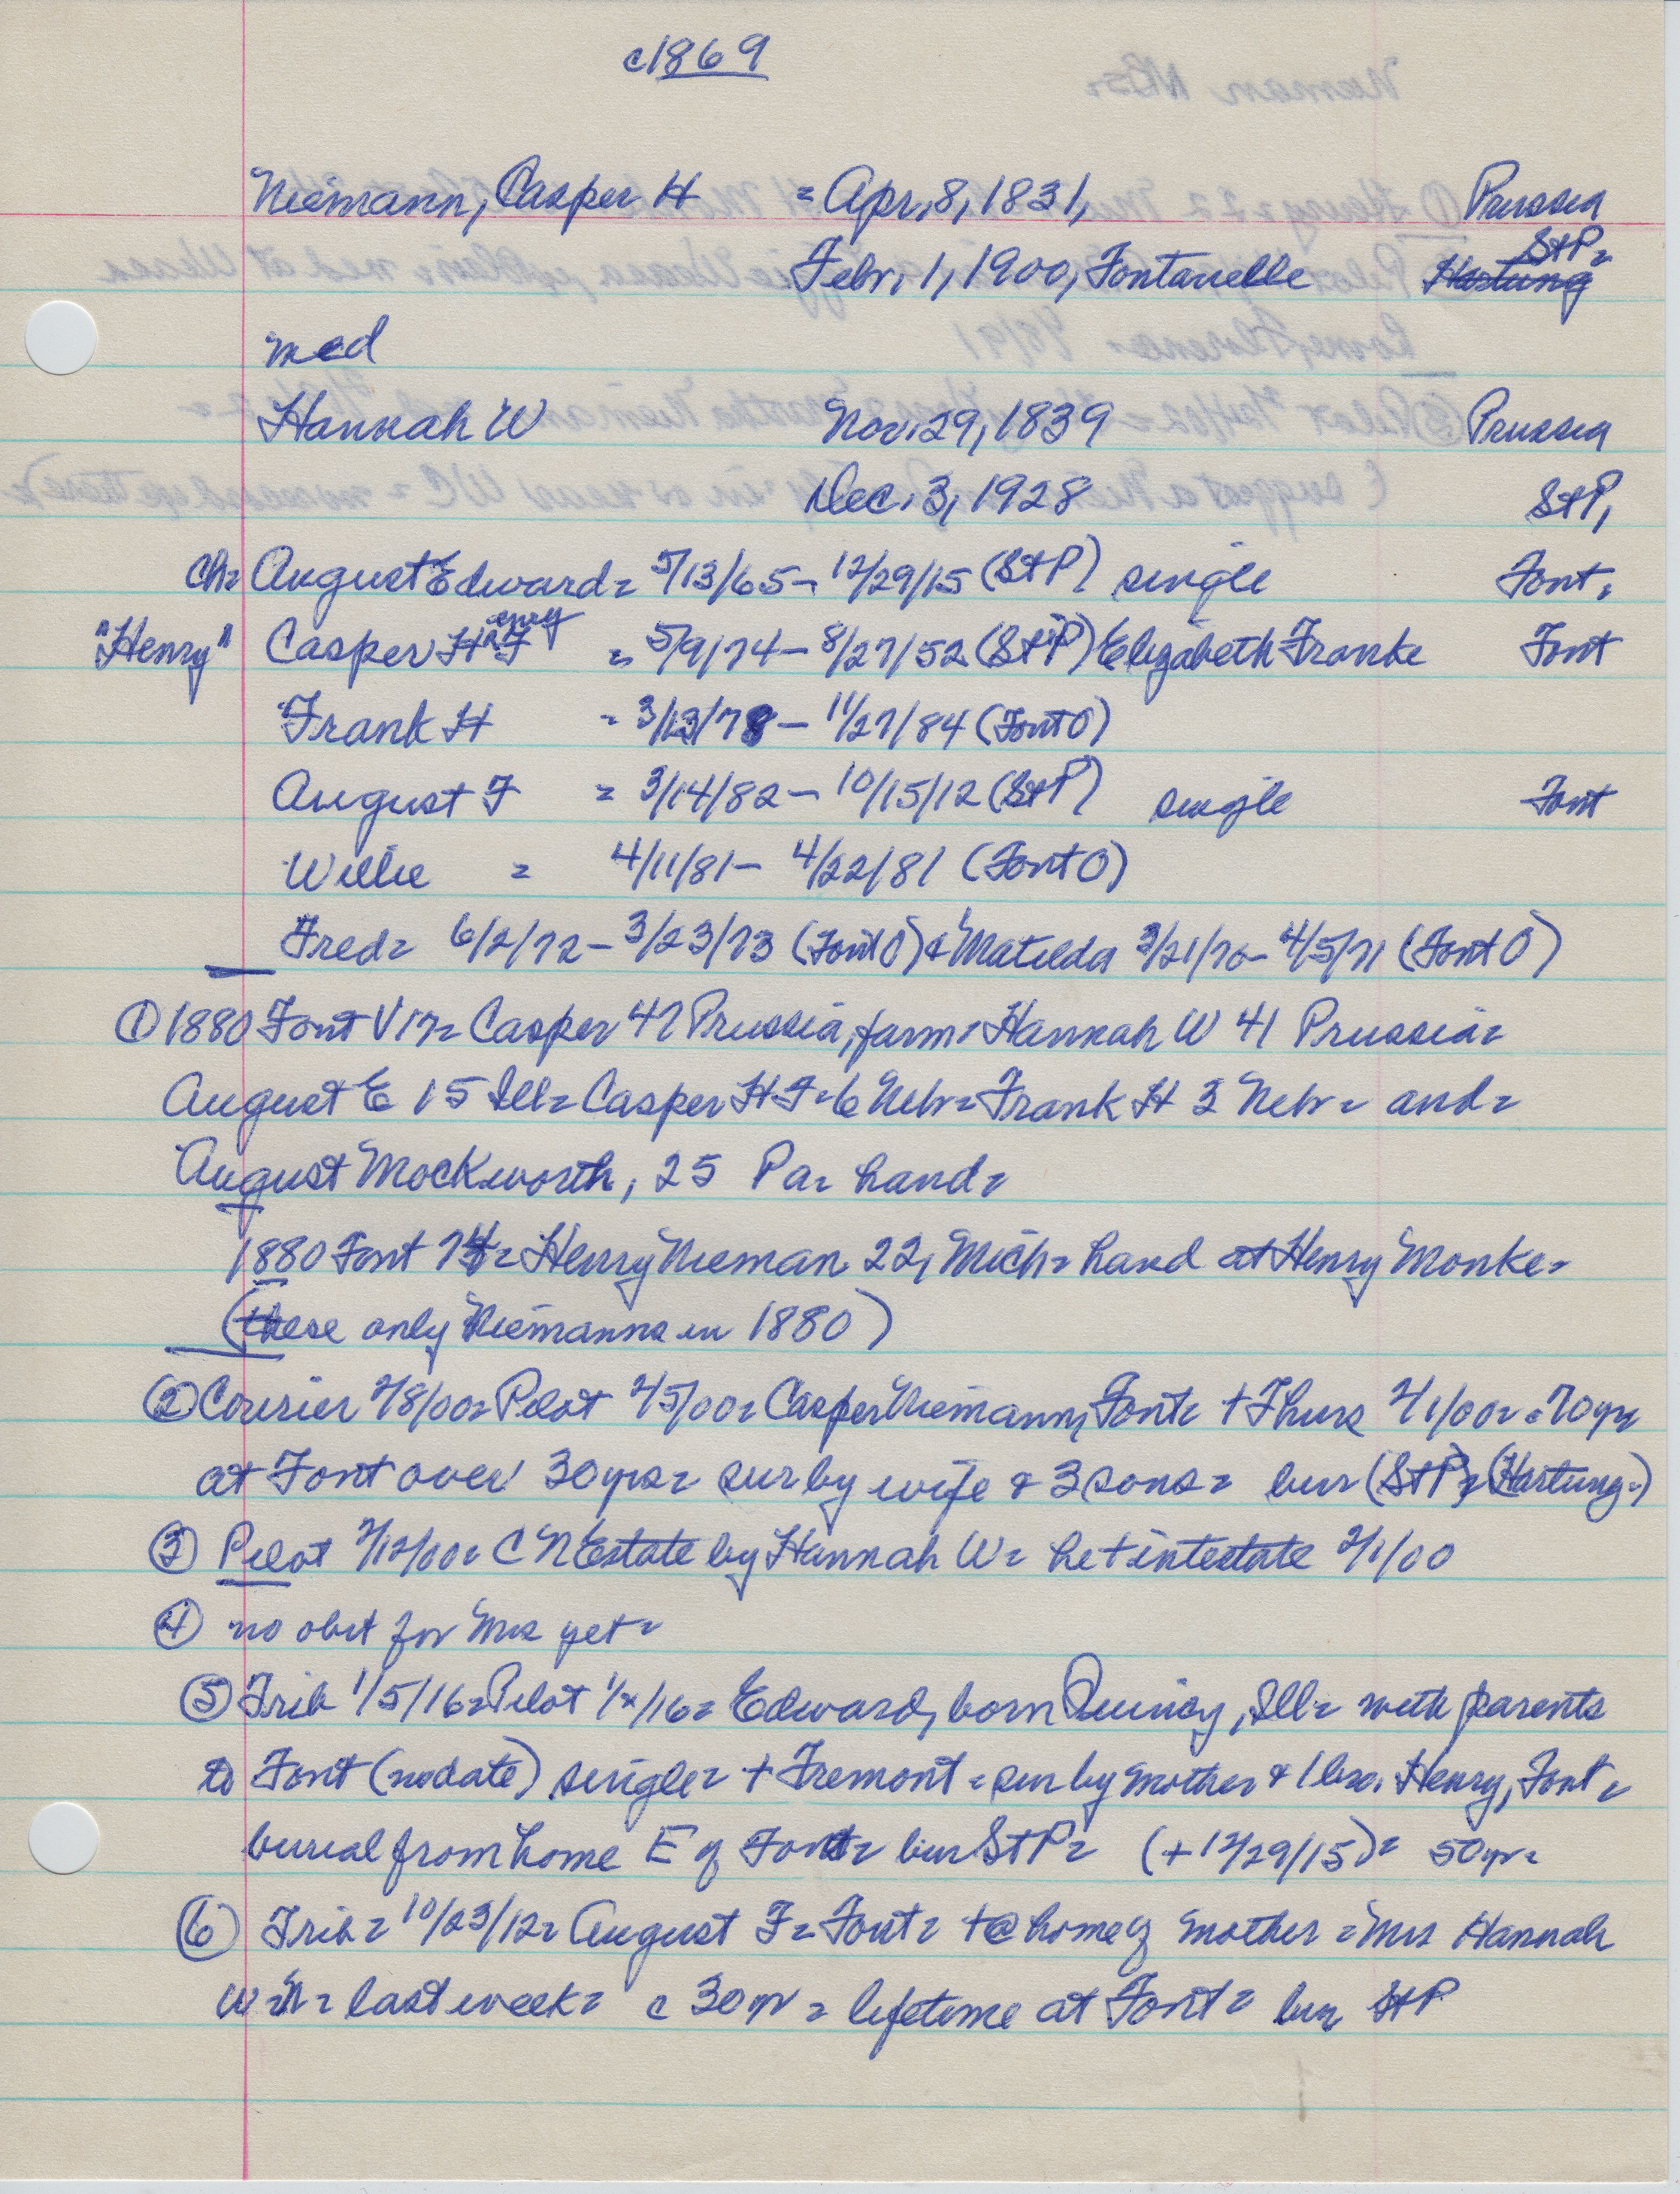 c1869
Niemann, Casper H = Apr. 8, 1831, Prussia
Febr. 1, 1900, Fontanelle Hartung StP=
med
Hannah W Nov. 29, 1839 Prussia
Dec. 3, 1928 StP,
ch= August Edward= 5/13/65 – 12/29/15 (StP) single Font.
"Henry" Casper H F enry = 5/9/74 – 8/27/52 (StP) Elizabeth Franke Font
Frank H = 3/13/78 – 11/27/84 (Font O)
August F = 3/14/82 – 10/15/12 (StP) single Font
Willie = 4/11/81 – 4/22/81 (Font O)
Fred= 6/2/72 – 3/23/73 (Font O) & Matilda 3/21/70 – 4/5/71 (Font O)
① 1880 Font V 17= Casper 47 Prussia, farm= Hannah W 41 Prussia=
August E 15 Ill= Casper H F=6 Nebr= Frank H 3 Nebr= and=
August Mockworth, 25 Pa= hand=
1880 Font = Henry Nieman 22, Mich= hand at Henry Monke=
(these only Niemanns in 1880)
② Courier 2/8/00= Pilot 2/5/00= Casper Niemann, Font= + Thurs 2/1/00= =70yrs
at Font over 30yrs= sur by wife & 3 sons= bur (StP= (Hartung=)
③ Pilot 2/12/00= C N Estate by Hannah W= he + intestate 2/1/00
④ no obit for Mrs yet=
⑤ Trib 1/5/16= Pilot 1/x/16= Edward, born Quincy, Ill= with parents
to Font (no date) single= + Fremont = sur by mother & 1 bro. Henry, Font=
burial from home E of Font= bur StP= (+12/29/15)= 50yr=
⑥ Trib= 10/23/12= August F= Font= +@ home of mother = Mrs Hannah
W=N= last week= c 30yr = lifetime at Font= bur StP